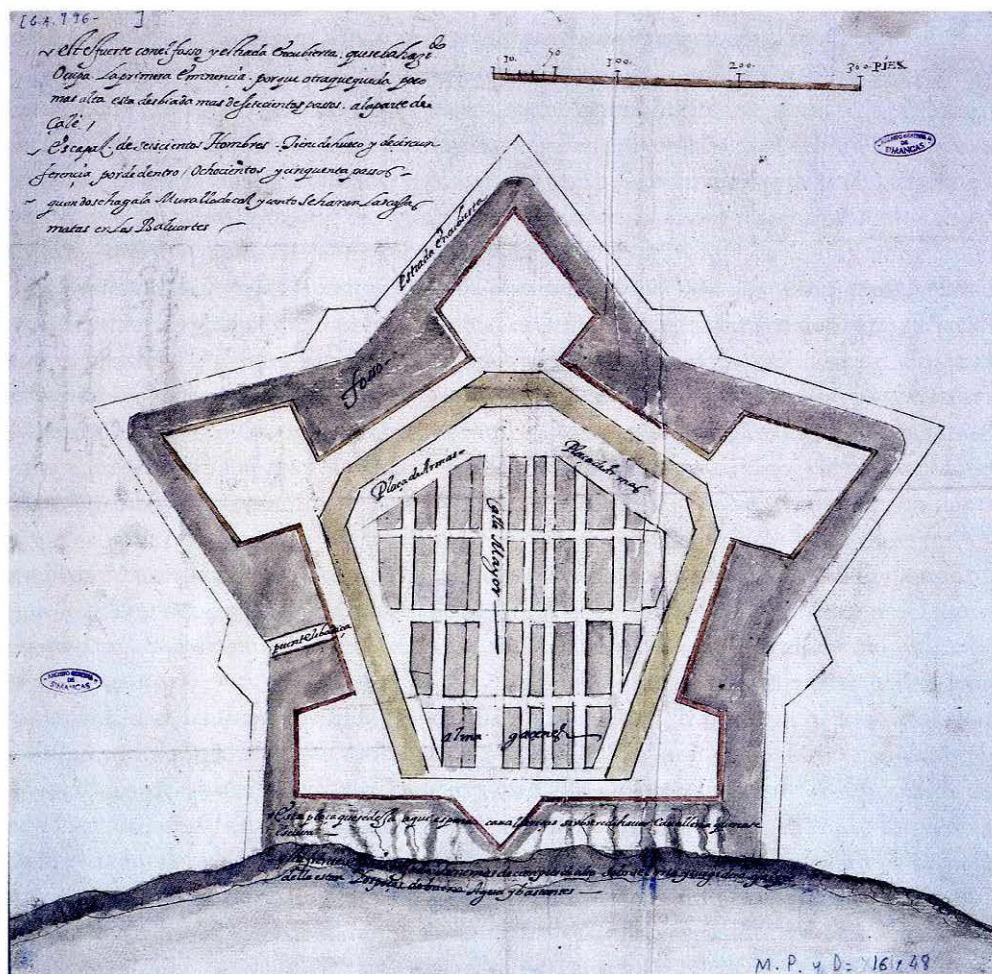 [G.A. 796- ]
este fuerte con el fosso y estrada encubierta. que se ba haziendo
Ocupa. La primera Eminencia. porque otra que queda poco
mas alta esta desbiada mas de setecientos passos. a la parte de
Cale,
Es capaz. de seiscientos Hombres. Tiene de hueco y de circun
ferencia por de dentro, Ochocientos y cinquenta passos
quando se haga la Muralla de cal y canto se haran Las casa
matas en Los Baluartes
50
100
200
300 PIES
ARCHIVO GENERAL
DE
SIMANCAS
estrada encubierta
fosso
Plaça de Armas
Plaça de Armas
Calle Mayor
puente lebadiça
ARCHIVO GENERAL
DE
SIMANCAS
alma gacenes
Esta plaça que se dessa aqui es para
della estan de buena Agua y bastantes
M. P. y D- 16, 48